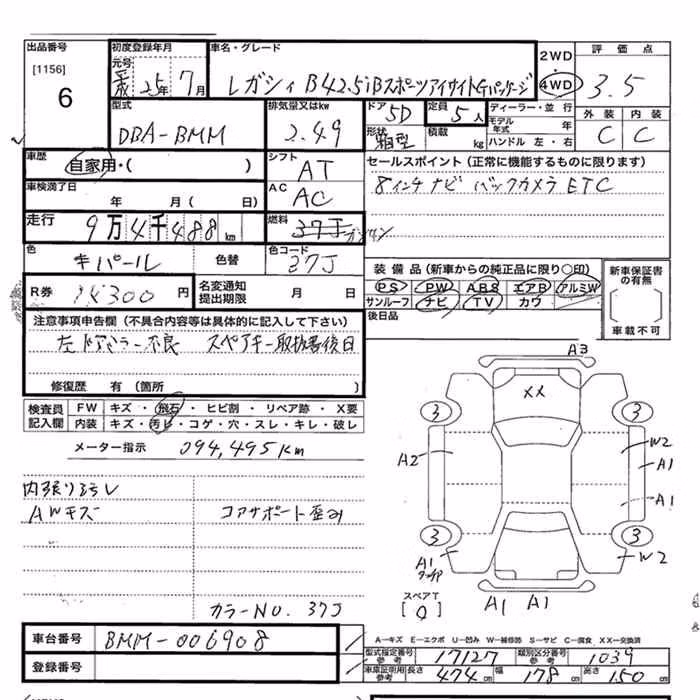 出品番号
[1156]
6
初度登録年月
元号
25年 7月
車名・グレード
レガシィ B4 2.5iBスポーツアイサイトGパッケージ
2WD
4WD
評価点
3.5
外装 内装
C C
型式
DBA-BMM
排気量又はkw
2.49
ドア
5D
形状
箱型
定員
5人
積載
kg
ディーラー・並行
モデル年式 年
ハンドル 左・右
車歴
自家用・( )
シフト
AT
セールスポイント (正常に機能するものに限ります)
8インチナビ バックカメラ ETC
車検満了日
年 月 ( 日)
AC
AC
走行
9万4千488km
燃料
37J ガソリン
色
キパール
色替
色コード
37J
装備品(新車からの純正品に限り〇印)
PS PW ABS エアB アルミW
サンルーフ ナビ TV カワ
後日品
新車保証書の有無
車載不可
R券
円
名変通知
提出期限
月 日
注意事項申告欄 (不具合内容等は具体的に記入して下さい)
左ドアミラー不良 スペアキー取扱書後日
修復歴 有 (箇所 )
検査員
記入欄
FW キズ・飛石・ヒビ割・リペア跡・X要
内装 キズ・汚レ・コゲ・穴・スレ・キレ・破レ
メーター指示 094,495Km
内張り汚レ
AWキズ コアサポート歪み
カラーNO. 37J
A3
XX
3 3
A2
W2
A1
A1
3 3
A1
W2
スペアT
[0]
A1 A1
車台番号
BMM-006908
登録番号
A-キズ E-エクボ U-凹み W-補修跡 S-サビ C-腐食 XX-交換済
型式指定番号
参考
17127
類別区分番号
参考
1039
車庫証明用
参考
長さ
474cm
幅
178cm
高さ
150cm